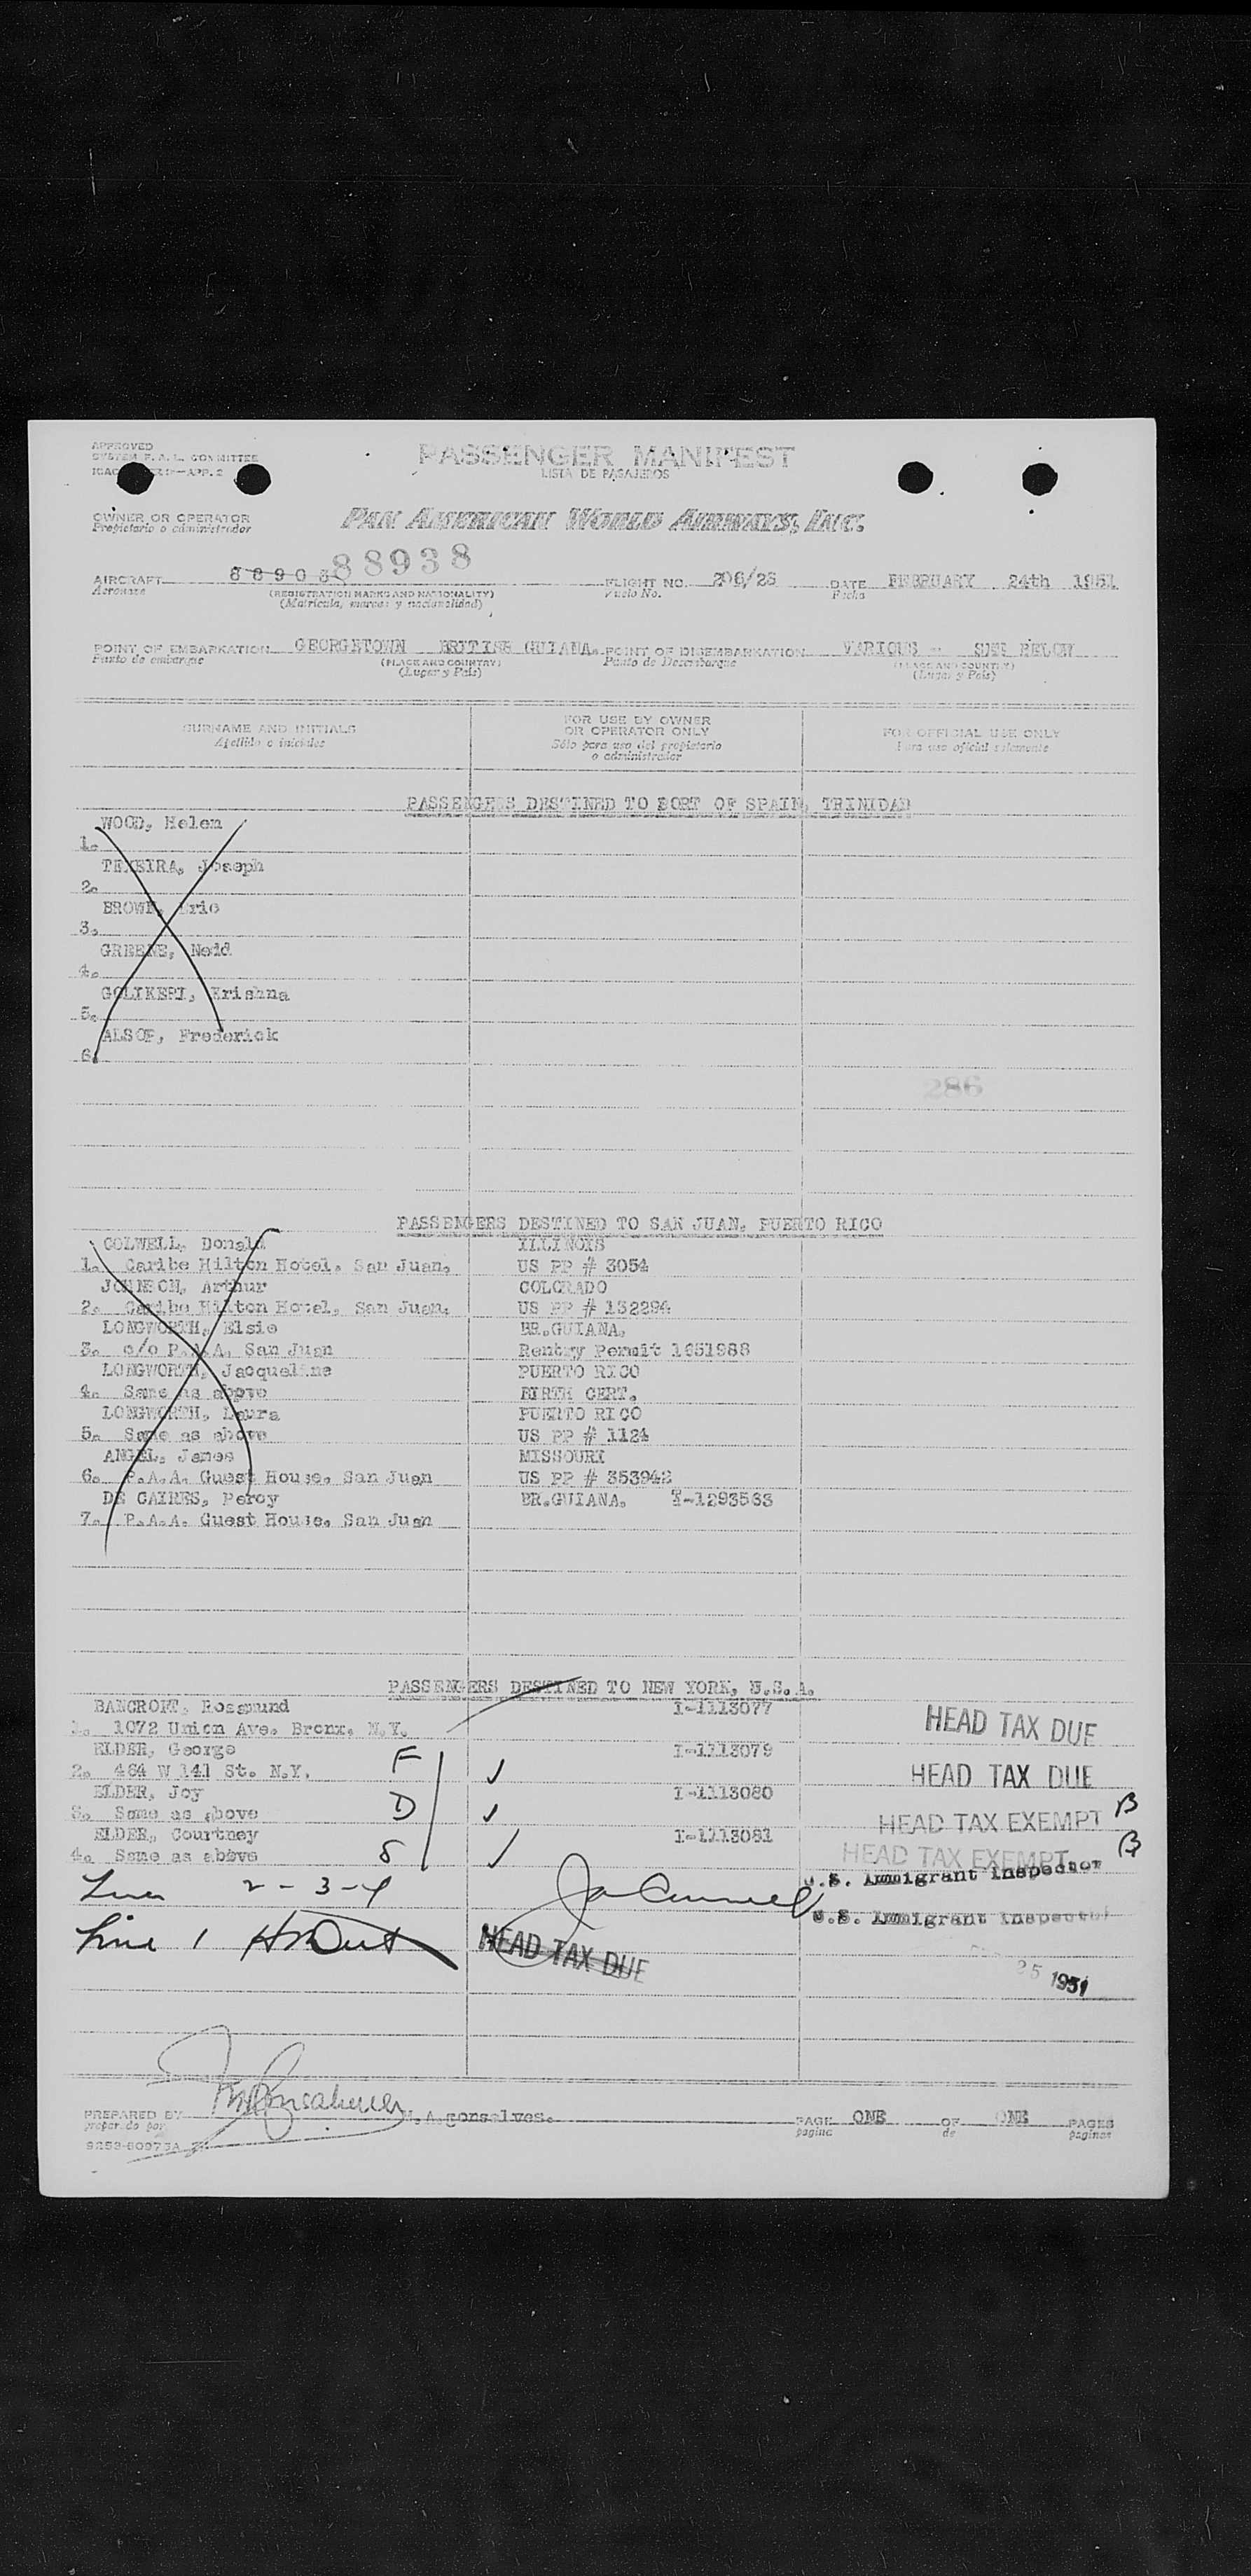 APPROVED
SYSTEM F. A. L. COMMITTEE
APP. 2
PASSENGER MANIFEST
LISTA DE PASAJEROS
OWNER OR OPERATOR
Propietario o administrador
PAN AMERICAN WORLD AIRWAYS, INC.
AIRCRAFT 88903 88938 FLIGHT NO. 206/28 DATE FEBRUARY 24th 1951
Aeronave (REGISTRATION MARKS AND NATIONALITY) Vuelo No. Fecha
(Matricula, marcas y nacionalidad)
POINT OF EMBARKATION GEORGETOWN BRITISH GUIANA. POINT OF DISEMBARKATION VARIOUS - SEE BELOW
Punto de embarque (PLACE AND COUNTRY) Punto de Desembarque (PLACE AND COUNTRY)
(Lugar y Pais) (Lugar y Pais)
SURNAME AND INITIALS FOR USE BY OWNER OR OPERATOR ONLY FOR OFFICIAL USE ONLY
Apellido e iniciales Sólo para uso del propietario o administrador Para uso oficial solamente
PASSENGERS DESTINED TO PORT OF SPAIN, TRINIDAD
WOOD, Helen
1.
TEXEIRA, Joseph
2.
BROWN, Eric
3.
GREENE, Nedd
4.
GOLIKERI, Krishna
5.
ALSOP, Frederick
6.
286
PASSENGERS DESTINED TO SAN JUAN, PUERTO RICO
COLWELL, Donald ILLINOIS
1. Caribe Hilton Hotel. San Juan, US PP # 3054
JOHNSON, Arthur COLORADO
2. Caribe Hilton Hotel, San Juan. US PP # 132294
LONGWORTH, Elsie BR.GUIANA.
3. c/o P.A.A. San Juan Rentry Permit 1651988
LONGWORTH, Jacqueline PUERTO RICO
4. Same as above BIRTH CERT.
LONGWORTH, Laura PUERTO RICO
5. Same as above US PP # 1124
ANGEL, James MISSOURI
6. P.A.A. Guest House, San Juan US PP # 353942
DE CAIRES, Percy BR.GUIANA. T-1293563
7. P.A.A. Guest House, San Juan
PASSENGERS DESTINED TO NEW YORK, U.S.A.
BANCROFT, Rosamund I-1113077
1. 1072 Union Ave. Bronx. N.Y. HEAD TAX DUE
ELDER, George I-1113079
2. 464 W 141 St. N.Y. F HEAD TAX DUE
ELDER, Joy I-1113080
3. Same as above D HEAD TAX EXEMPT B
ELDER, Courtney I-1113081
4. Same as above S HEAD TAX EXEMPT B
Line 2-3-4 U.S. Immigrant Inspector
U.S. Immigrant Inspector
Line 1 HEAD TAX DUE
25 1951
PREPARED BY M.A.gonsalves. PAGE ONE OF ONE PAGES
preparado por pagina de paginas